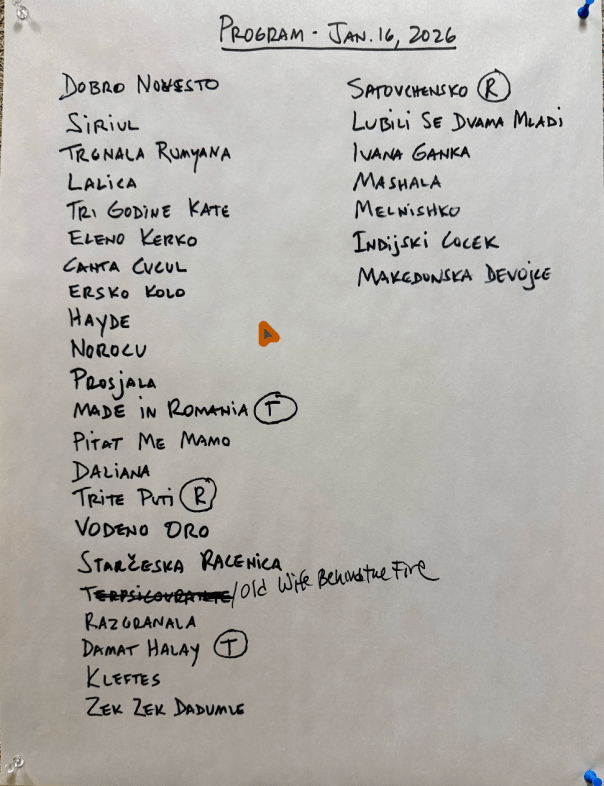 PROGRAM - JAN. 16, 2026
DOBRO NOVESTO
SIRIUL
TRGNALA RUMYANA
LALICA
TRI GODINE KATE
ELENO KERKO
CANTA CUCUL
ERSKO KOLO
HAYDE
NOROCU
PROSJALA
MADE IN ROMANIA T
PITAT ME MAMO
DALIANA
TRITE PUTI R
VODENO ORO
STARČESKA RACENICA
/Old Wife Behond the Fire
RAZGRANALA
DAMAT HALAY T
KLEFTES
ZEK ZEK DADUMLE
SATOVCHENSKO R
LUBILI SE DVAMA MLADI
IVANA GANKA
MASHALA
MELNISHKO
INDIJSKI COCEK
MAKEDONSKA DEVOJCE